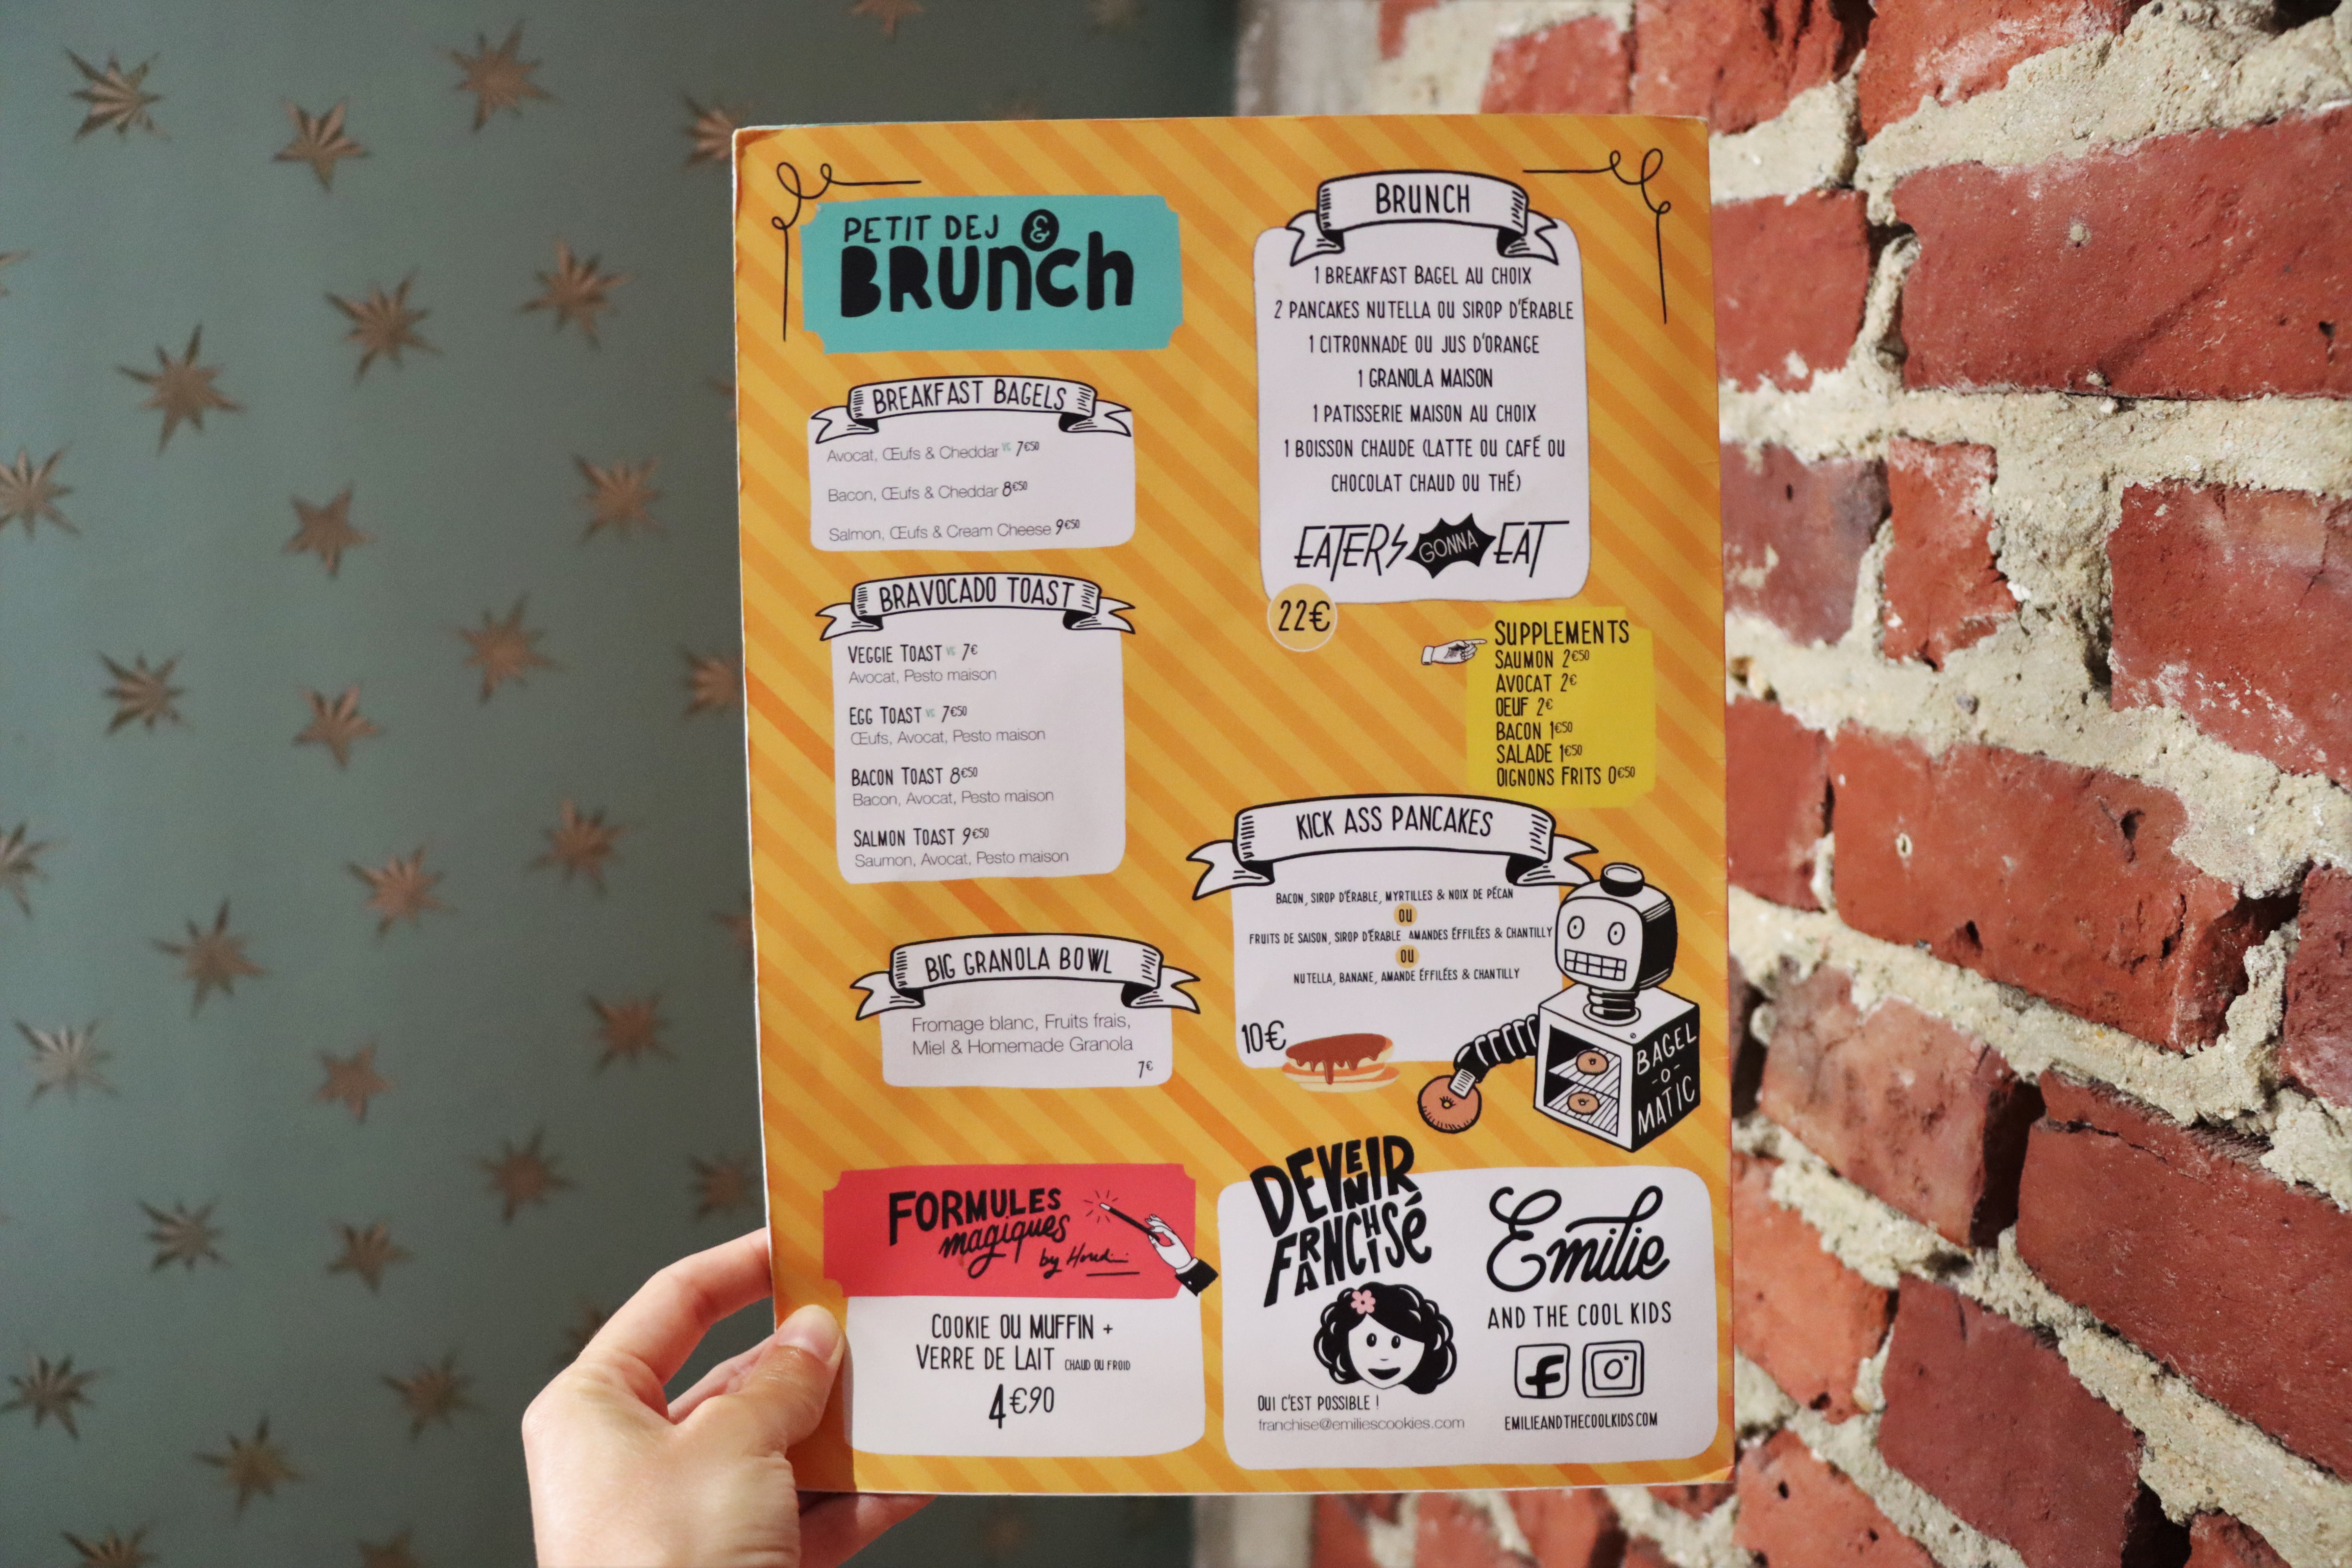 PETIT DEJ &
BRUNCH
BREAKFAST BAGELS
Avocat, Œufs & Cheddar VG 7€50
Bacon, Œufs & Cheddar 8€50
Salmon, Œufs & Cream Cheese 9€50
BRAVOCADO TOAST
VEGGIE TOAST VG 7€
Avocat, Pesto maison
EGG TOAST VG 7€50
Œufs, Avocat, Pesto maison
BACON TOAST 8€50
Bacon, Avocat, Pesto maison
SALMON TOAST 9€50
Saumon, Avocat, Pesto maison
BIG GRANOLA BOWL
Fromage blanc, Fruits frais,
Miel & Homemade Granola
7€
FORMULES
magiques
by Houdini
COOKIE OU MUFFIN +
VERRE DE LAIT CHAUD OU FROID
4€90
BRUNCH
1 BREAKFAST BAGEL AU CHOIX
2 PANCAKES NUTELLA OU SIROP D'ÉRABLE
1 CITRONNADE OU JUS D'ORANGE
1 GRANOLA MAISON
1 PATISSERIE MAISON AU CHOIX
1 BOISSON CHAUDE (LATTE OU CAFÉ OU
CHOCOLAT CHAUD OU THÉ)
EATERS GONNA EAT
22€
SUPPLEMENTS
SAUMON 2€50
AVOCAT 2€
OEUF 2€
BACON 1€50
SALADE 1€50
OIGNONS FRITS 0€50
KICK ASS PANCAKES
BACON, SIROP D'ÉRABLE, MYRTILLES & NOIX DE PÉCAN
OU
FRUITS DE SAISON, SIROP D'ÉRABLE AMANDES ÉFFILÉES & CHANTILLY
OU
NUTELLA, BANANE, AMANDE ÉFFILÉES & CHANTILLY
10€
BAGEL
-O-
MATIC
DEVENIR
FRANCHISÉ
OUI C'EST POSSIBLE !
franchise@emiliescookies.com
Emilie
AND THE COOL KIDS
EMILIEANDTHECOOLKIDS.COM